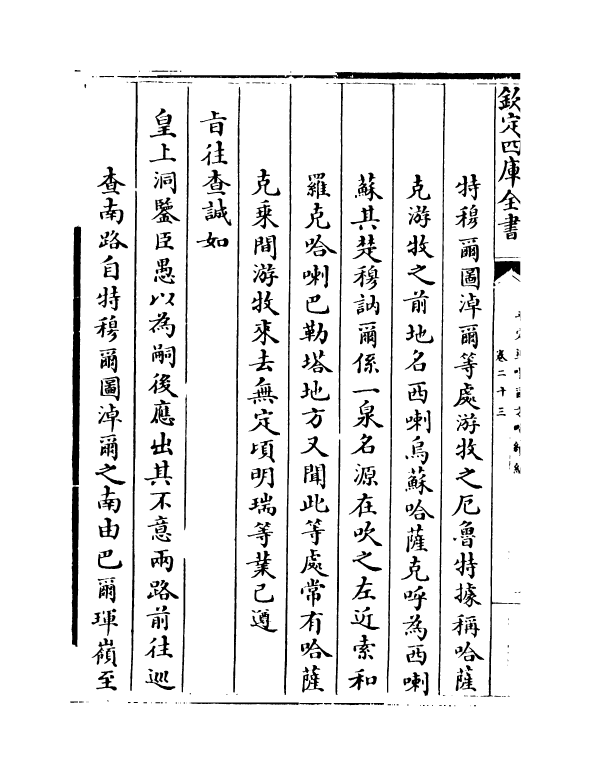 欽定四庫全書
卷二十三
特穆爾圖淖爾等處游牧之厄魯特據稱哈薩
克游牧之前地名西喇烏蘇哈薩克呼為西喇
蘇其楚穆訥爾係一泉名源在吹之左近索和
羅克哈喇巴勒塔地方又聞此等處常有哈薩
克乘間游牧來去無定頃明瑞等業已遵
旨往查誠如
皇上洞鑒臣愚以為嗣後應出其不意兩路前往巡
查南路自特穆爾圖淖爾之南由巴爾琿嶺至